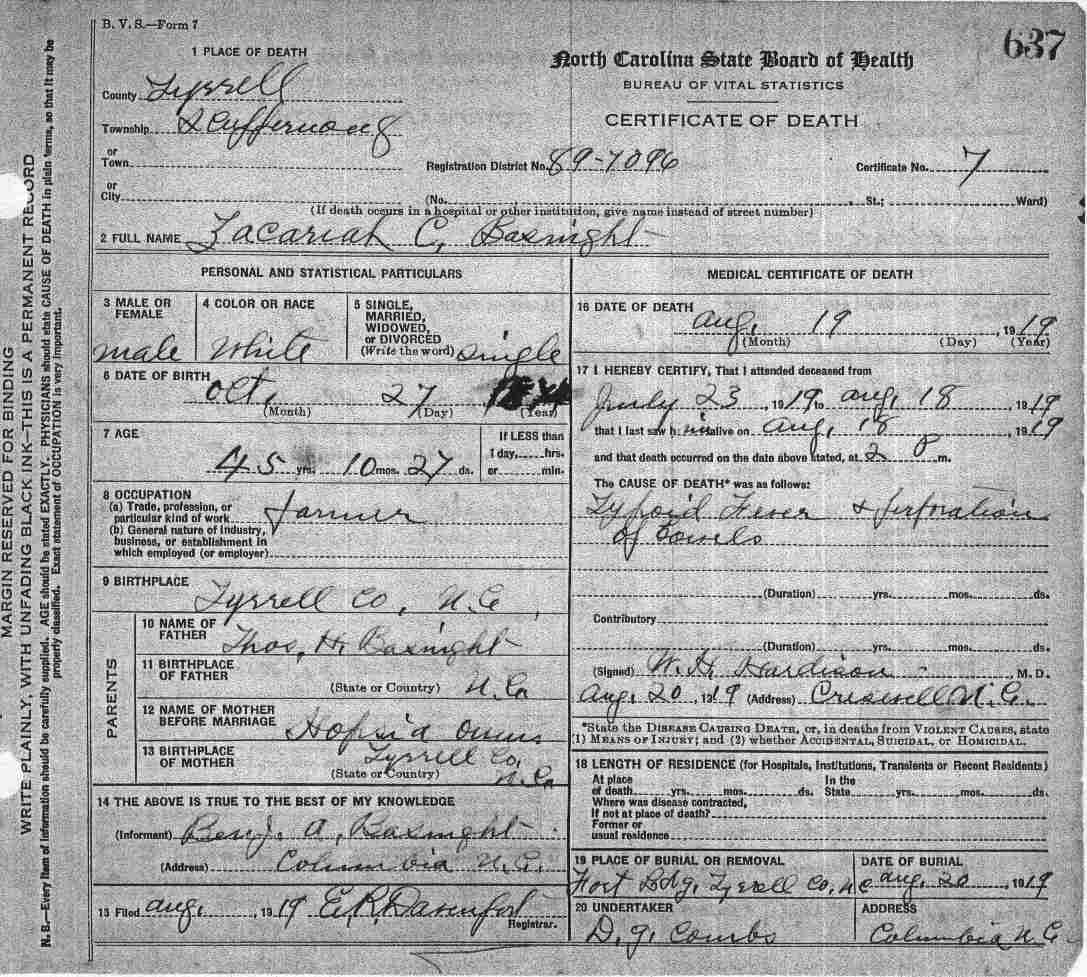 B. V. S.—Form 7
637
1 PLACE OF DEATH
North Carolina State Board of Health
BUREAU OF VITAL STATISTICS
CERTIFICATE OF DEATH
County Tyrrell
Township Scuffernong
or
Town
Registration District No. 89-7096
Certificate No. 7
or
City
(No. St.; Ward)
(If death occurs in a hospital or other institution, give name instead of street number)
2 FULL NAME Zacariah C, Basnight
PERSONAL AND STATISTICAL PARTICULARS
3 MALE OR FEMALE
male
4 COLOR OR RACE
White
5 SINGLE, MARRIED, WIDOWED, or DIVORCED
(Write the word) single
6 DATE OF BIRTH
Oct, 27
(Month) (Day) (Year)
7 AGE
45 yrs. 10 mos. 27 ds.
If LESS than
1 day, hrs.
or min.
8 OCCUPATION
(a) Trade, profession, or
particular kind of work farmer
(b) General nature of industry,
business, or establishment in
which employed (or employer)
9 BIRTHPLACE
Tyrrell Co, N.C,
PARENTS
10 NAME OF FATHER
Thos, H. Basnight
11 BIRTHPLACE OF FATHER
(State or Country) N. Ca
12 NAME OF MOTHER BEFORE MARRIAGE
Owens
13 BIRTHPLACE OF MOTHER
(State or Country) Tyrrell Co, N. Ca
14 THE ABOVE IS TRUE TO THE BEST OF MY KNOWLEDGE
(Informant) Benj. A, Basnight
(Address) Columbia N.C.
15 Filed Aug, 1919 E. R. Davenport
Registrar.
MEDICAL CERTIFICATE OF DEATH
16 DATE OF DEATH
Aug, 19, 1919
(Month) (Day) (Year)
17 I HEREBY CERTIFY, That I attended deceased from
July 23, 1919 to Aug, 18, 1919
that I last saw him alive on Aug, 18, 1919
and that death occurred on the date above stated, at 2 P m.
The CAUSE OF DEATH* was as follows:
Typoid Fever & perforation
of bowels
(Duration) yrs. mos. ds.
Contributory
(Duration) yrs. mos. ds.
(Signed) W. H. Hardison, M. D.
Aug, 20 1919 (Address) Creswell N.C.
*State the DISEASE CAUSING DEATH, or, in deaths from VIOLENT CAUSES, state
(1) MEANS OF INJURY; and (2) whether ACCIDENTAL, SUICIDAL, or HOMICIDAL.
18 LENGTH OF RESIDENCE (for Hospitals, Institutions, Transients or Recent Residents)
At place of death yrs. mos. ds.
In the State yrs. mos. ds.
Where was disease contracted,
If not at place of death?
Former or
usual residence
19 PLACE OF BURIAL OR REMOVAL
Fort Ldg, Tyrrell Co, NC
DATE OF BURIAL
Aug, 20, 1919
20 UNDERTAKER
D. J. Combs
ADDRESS
Columbia N.C
MARGIN RESERVED FOR BINDING
WRITE PLAINLY, WITH UNFADING BLACK INK—THIS IS A PERMANENT RECORD
N. B.—Every item of information should be carefully supplied. AGE should be stated EXACTLY. PHYSICIANS should state CAUSE OF DEATH in plain terms, so that it may be
properly classified. Exact statement of OCCUPATION is very important.